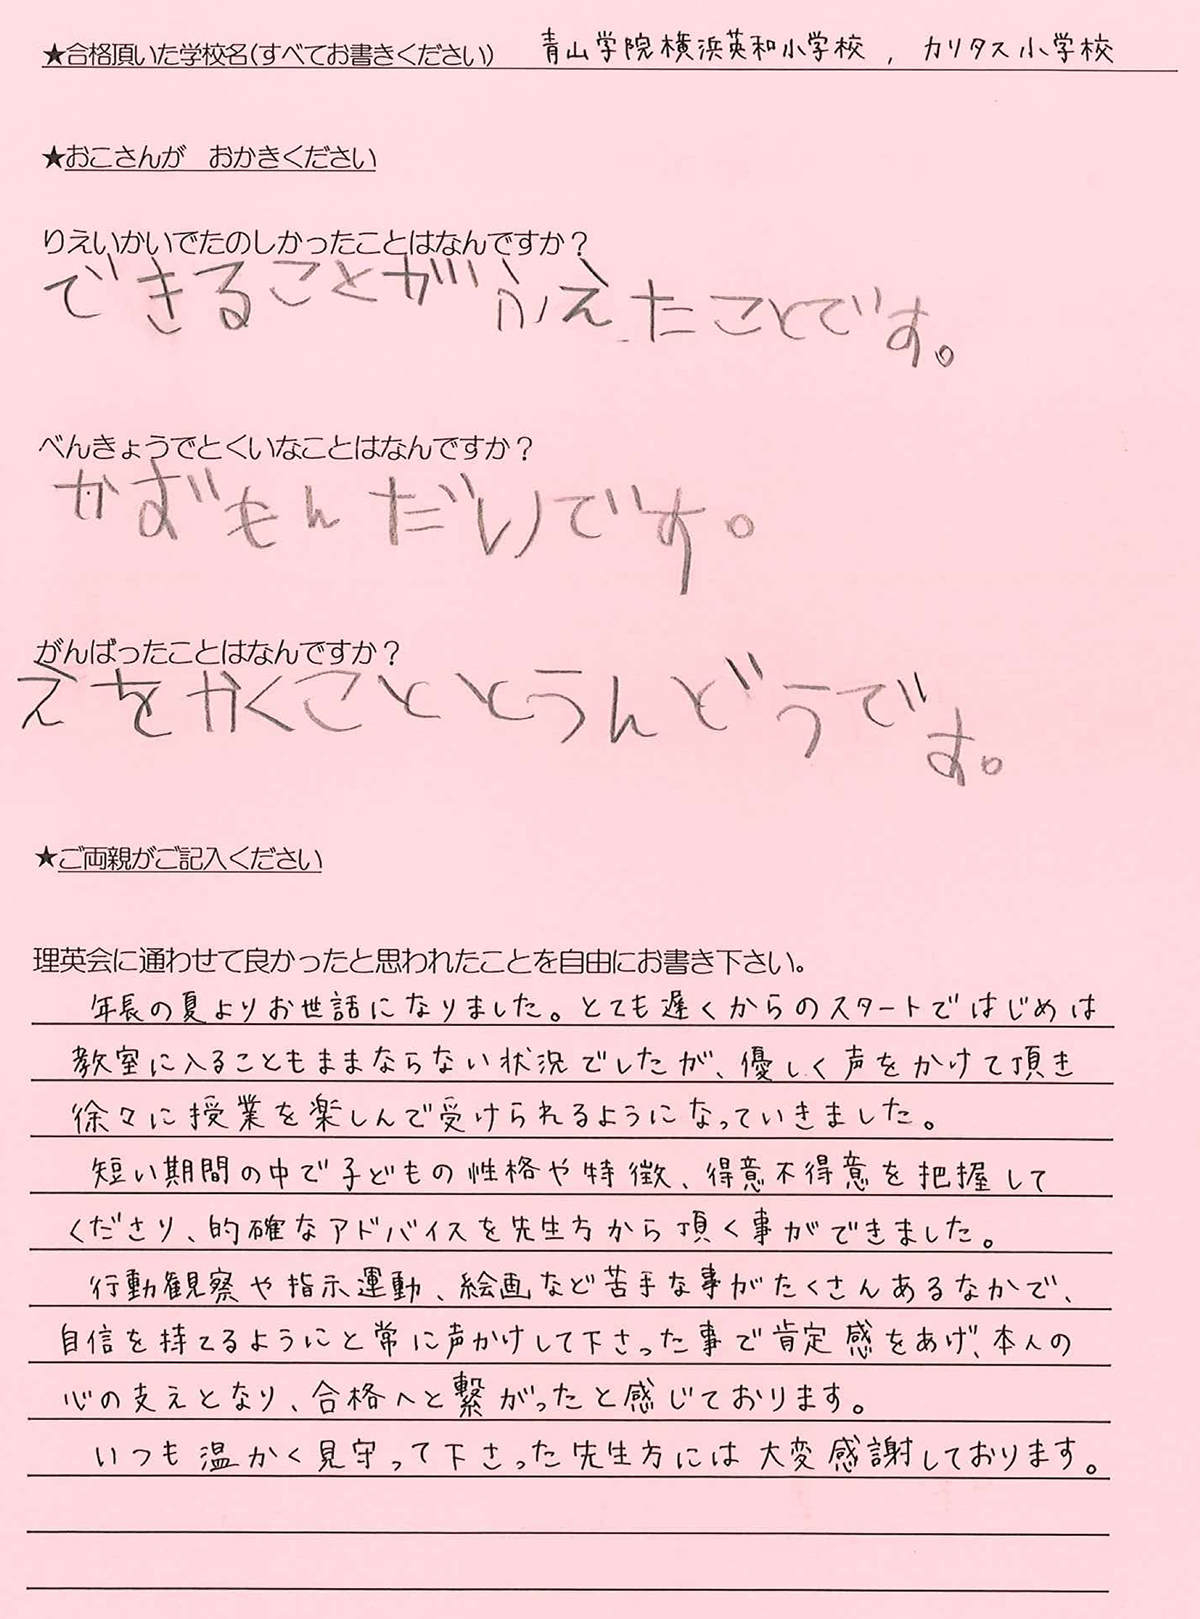 ★合格頂いた学校名(すべてお書きください) 青山学院横浜英和小学校 , カリタス小学校
★おこさんが おかきください
りえいかいでたのしかったことはなんですか？
できることがふえたことです。
べんきょうでとくいなことはなんですか？
かずもんだいです。
がんばったことはなんですか？
えをかくこととうんどうです。
★ご両親がご記入ください
理英会に通わせて良かったと思われたことを自由にお書き下さい。
年長の夏よりお世話になりました。とても遅くからのスタートではじめは
教室に入ることもままならない状況でしたが、優しく声をかけて頂き
徐々に授業を楽しんで受けられるようになっていきました。
短い期間の中で子どもの性格や特徴、得意不得意を把握して
くださり、的確なアドバイスを先生方から頂く事ができました。
行動観察や指示運動、絵画など苦手な事がたくさんあるなかで、
自信を持てるようにと常に声かけして下さった事で肯定感をあげ、本人の
心の支えとなり、合格へと繋がったと感じております。
いつも温かく見守って下さった先生方には大変感謝しております。